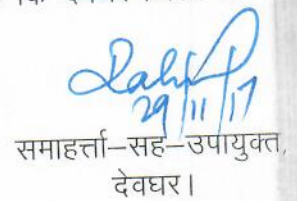 29/11/17
समाहर्त्ता–सह–उपायुक्त,
देवघर।